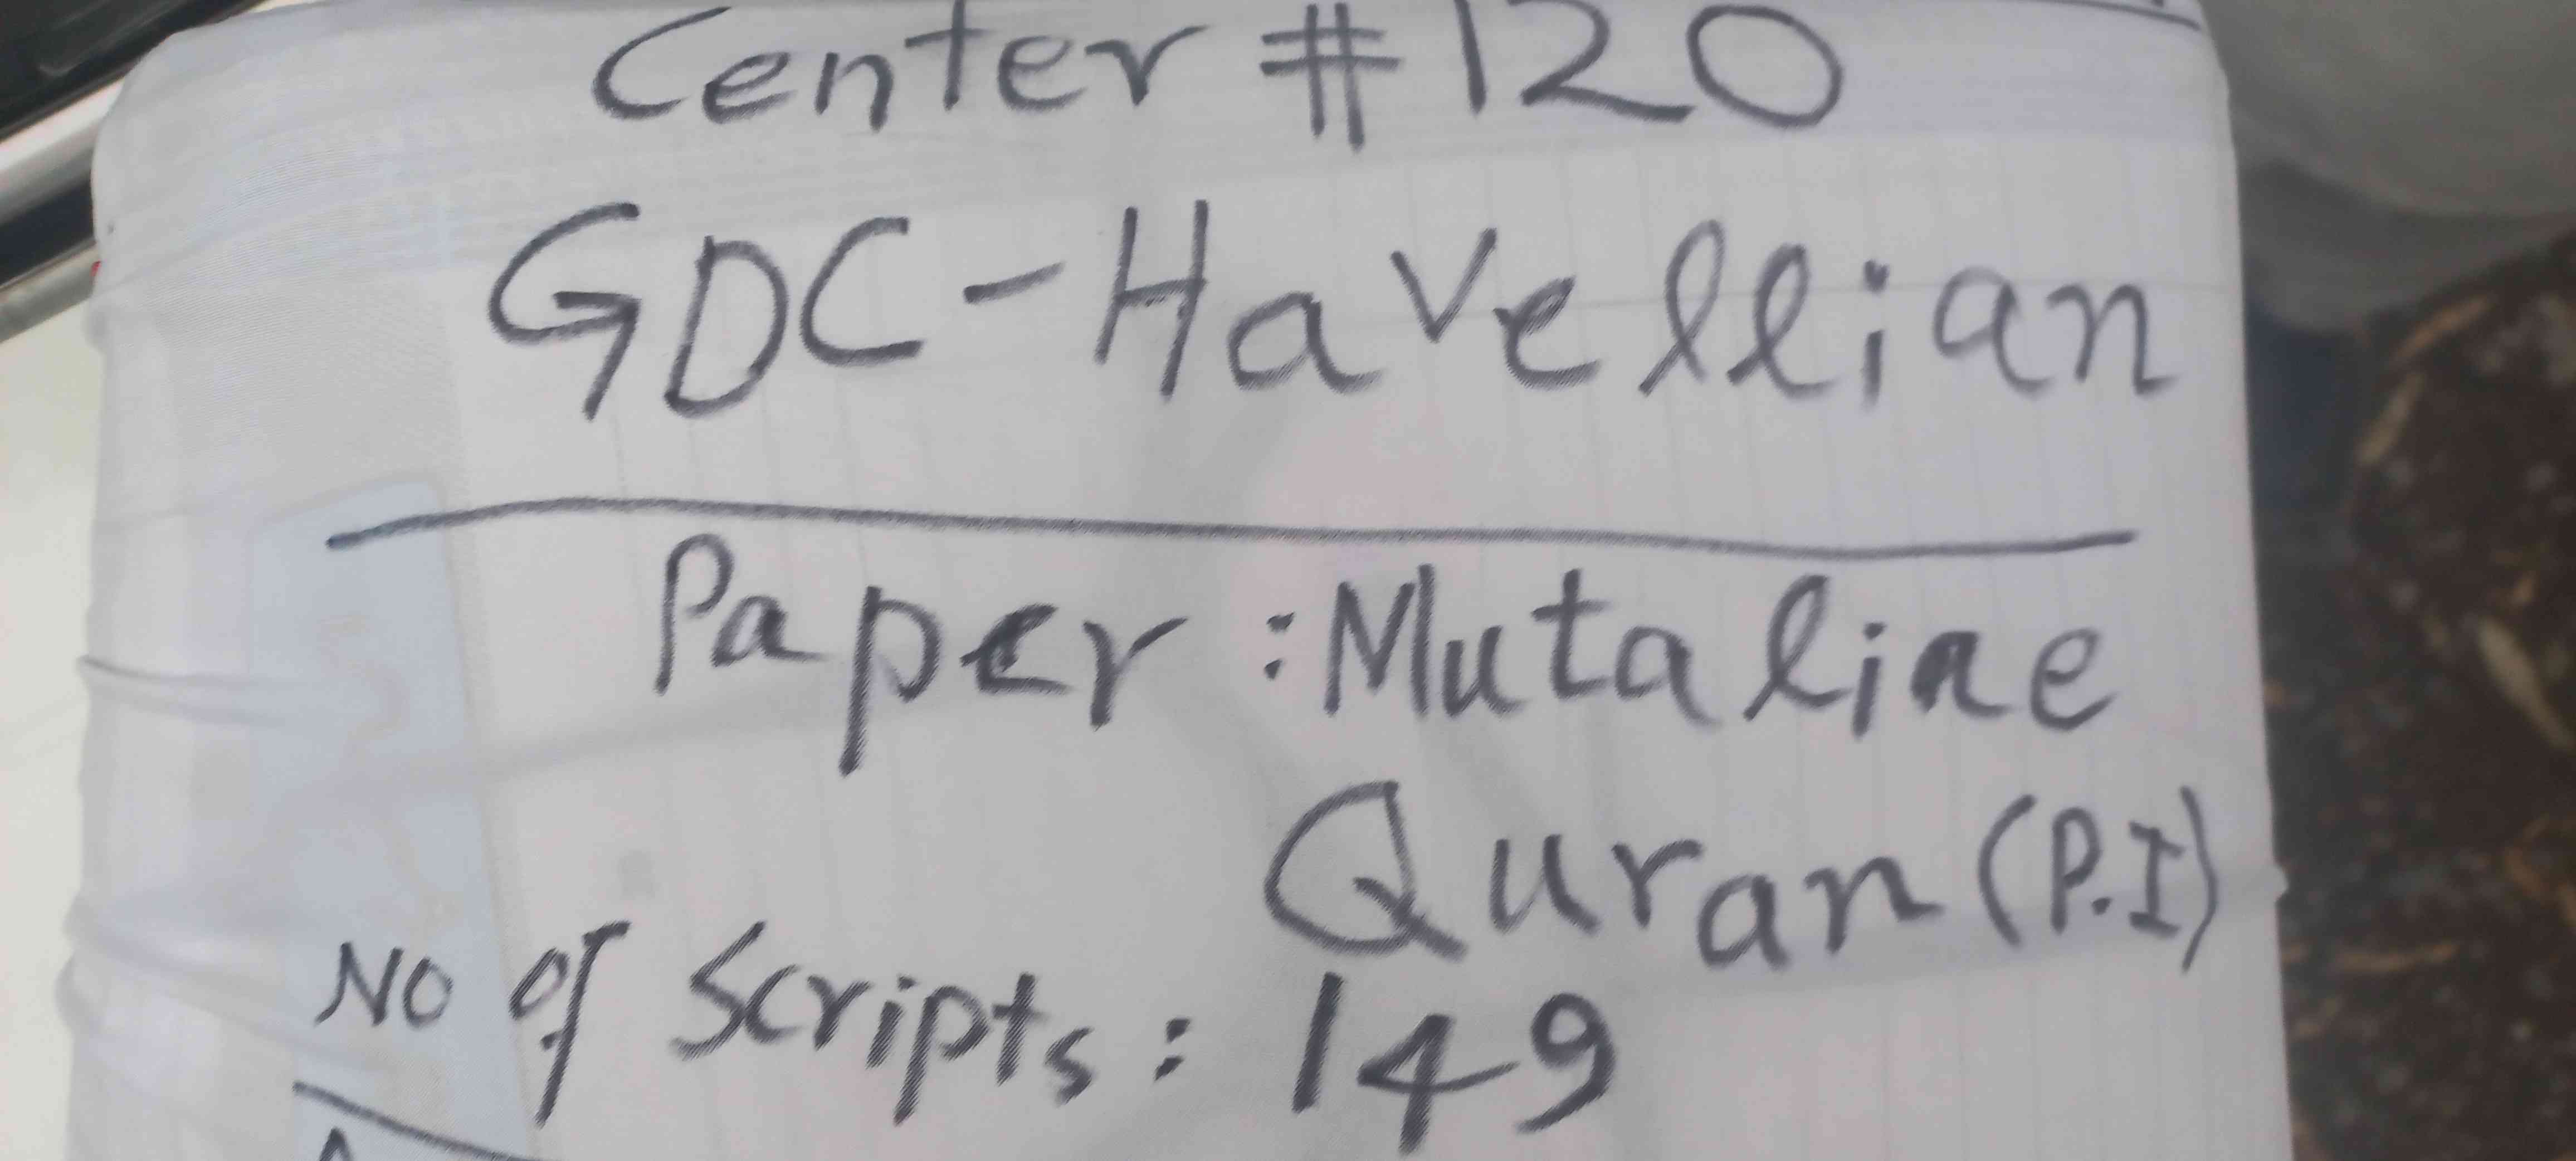 Center #120
GDC-Havellian
Paper : Mutaliae
Quran (P.I)
No of Scripts : 149